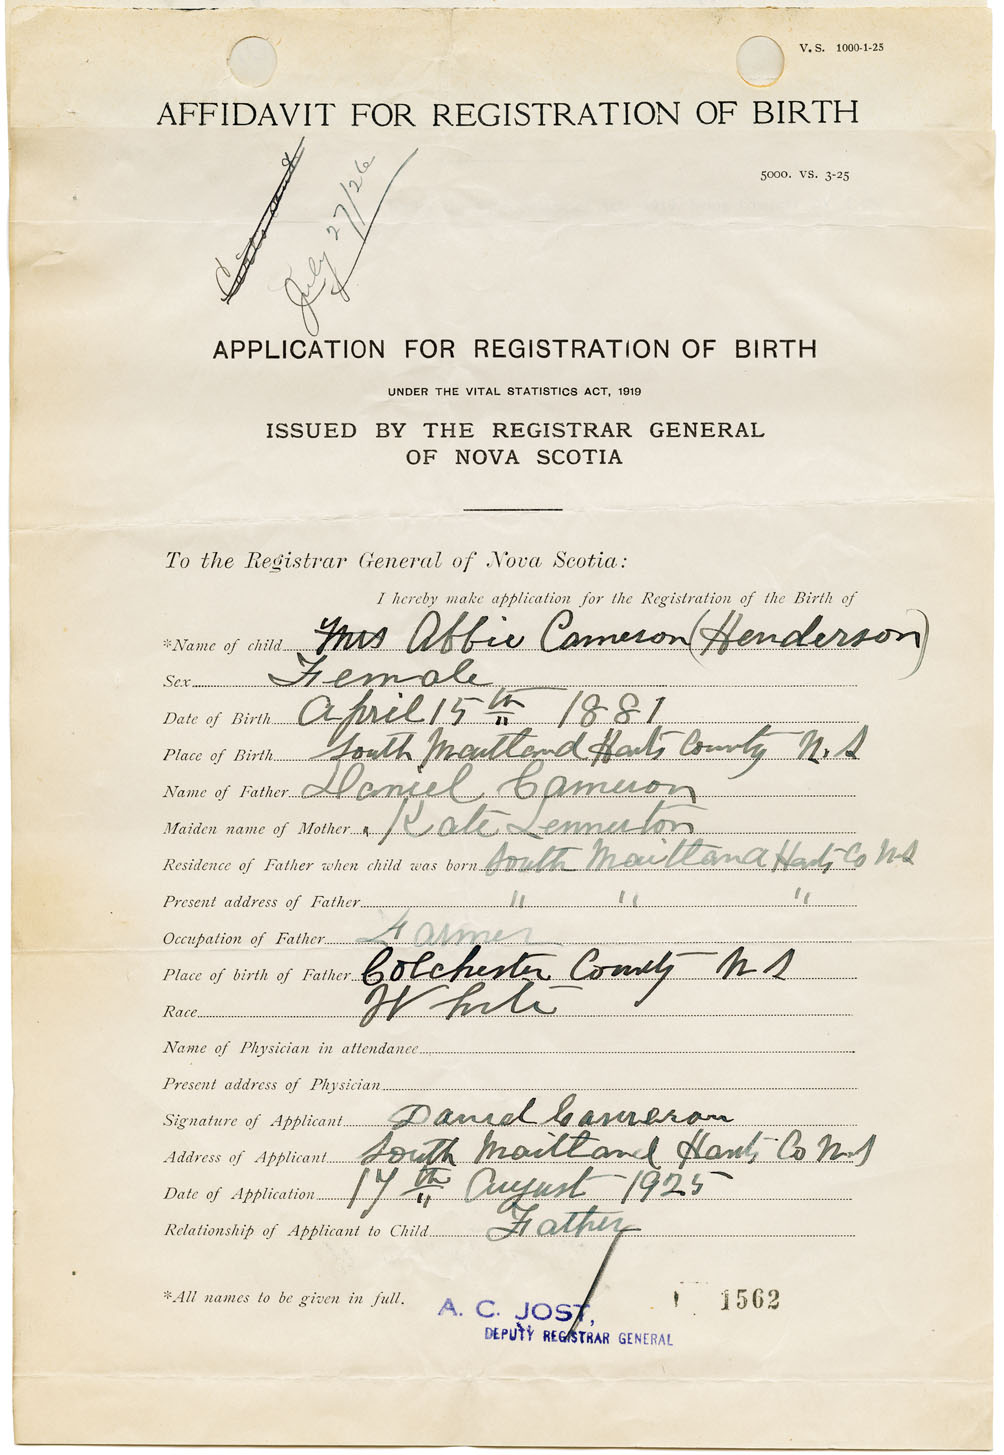 V. S. 1000-1-25
AFFIDAVIT FOR REGISTRATION OF BIRTH
5000. VS. 3-25
July 27/26
APPLICATION FOR REGISTRATION OF BIRTH
UNDER THE VITAL STATISTICS ACT, 1919
ISSUED BY THE REGISTRAR GENERAL
OF NOVA SCOTIA
To the Registrar General of Nova Scotia:
I hereby make application for the Registration of the Birth of
*Name of child Mrs Abbie Cameron (Henderson)
Sex Female
Date of Birth April 15th 1881
Place of Birth South Maitland Hants County N. S
Name of Father Daniel Cameron
Maiden name of Mother Kate
Residence of Father when child was born South Maitland Hants Co N S
Present address of Father " " "
Occupation of Father Farmer
Place of birth of Father Colchester County N S
Race White
Name of Physician in attendance
Present address of Physician
Signature of Applicant Daniel Cameron
Address of Applicant South Maitland Hants Co N. S
Date of Application 17th August 1925
Relationship of Applicant to Child Father
*All names to be given in full.
A. C. JOST,
DEPUTY REGISTRAR GENERAL
1562